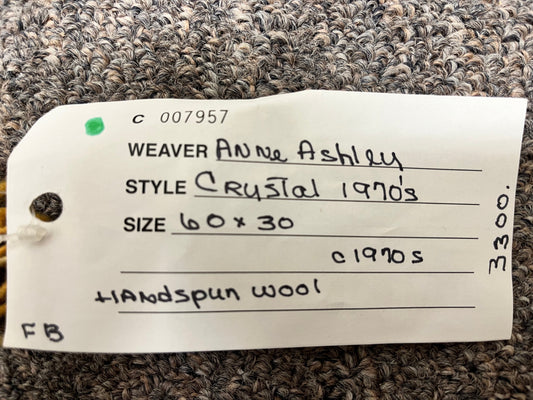 C 007957
WEAVER Anne Ashley
STYLE Crystal 1970's
SIZE 60 x 30
c 1970s
Handspun wool
FB
3300.